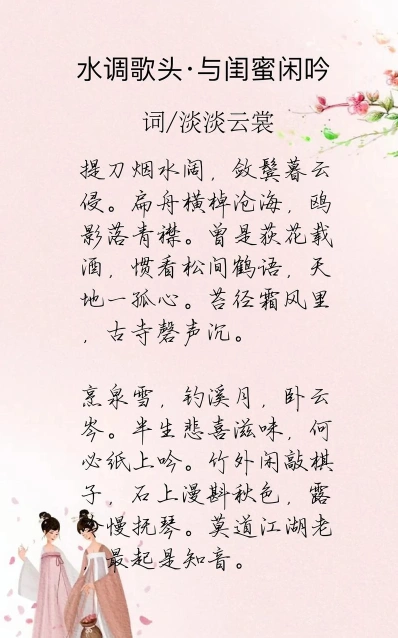 水调歌头·与闺蜜闲吟
词/淡淡云裳
提刀烟水阔，敛鬓暮云
侵。扁舟横棹沧海，鸥
影落青襟。曾是荻花载
酒，惯看松间鹤语，天
地一孤心。苔径霜风里
，古寺磬声沉。
烹泉雪，钓溪月，卧云
岑。半生悲喜滋味，何
必纸上吟。竹外闲敲棋
子，石上漫斟秋色，露
慢抚琴。莫道江湖老
最起是知音。